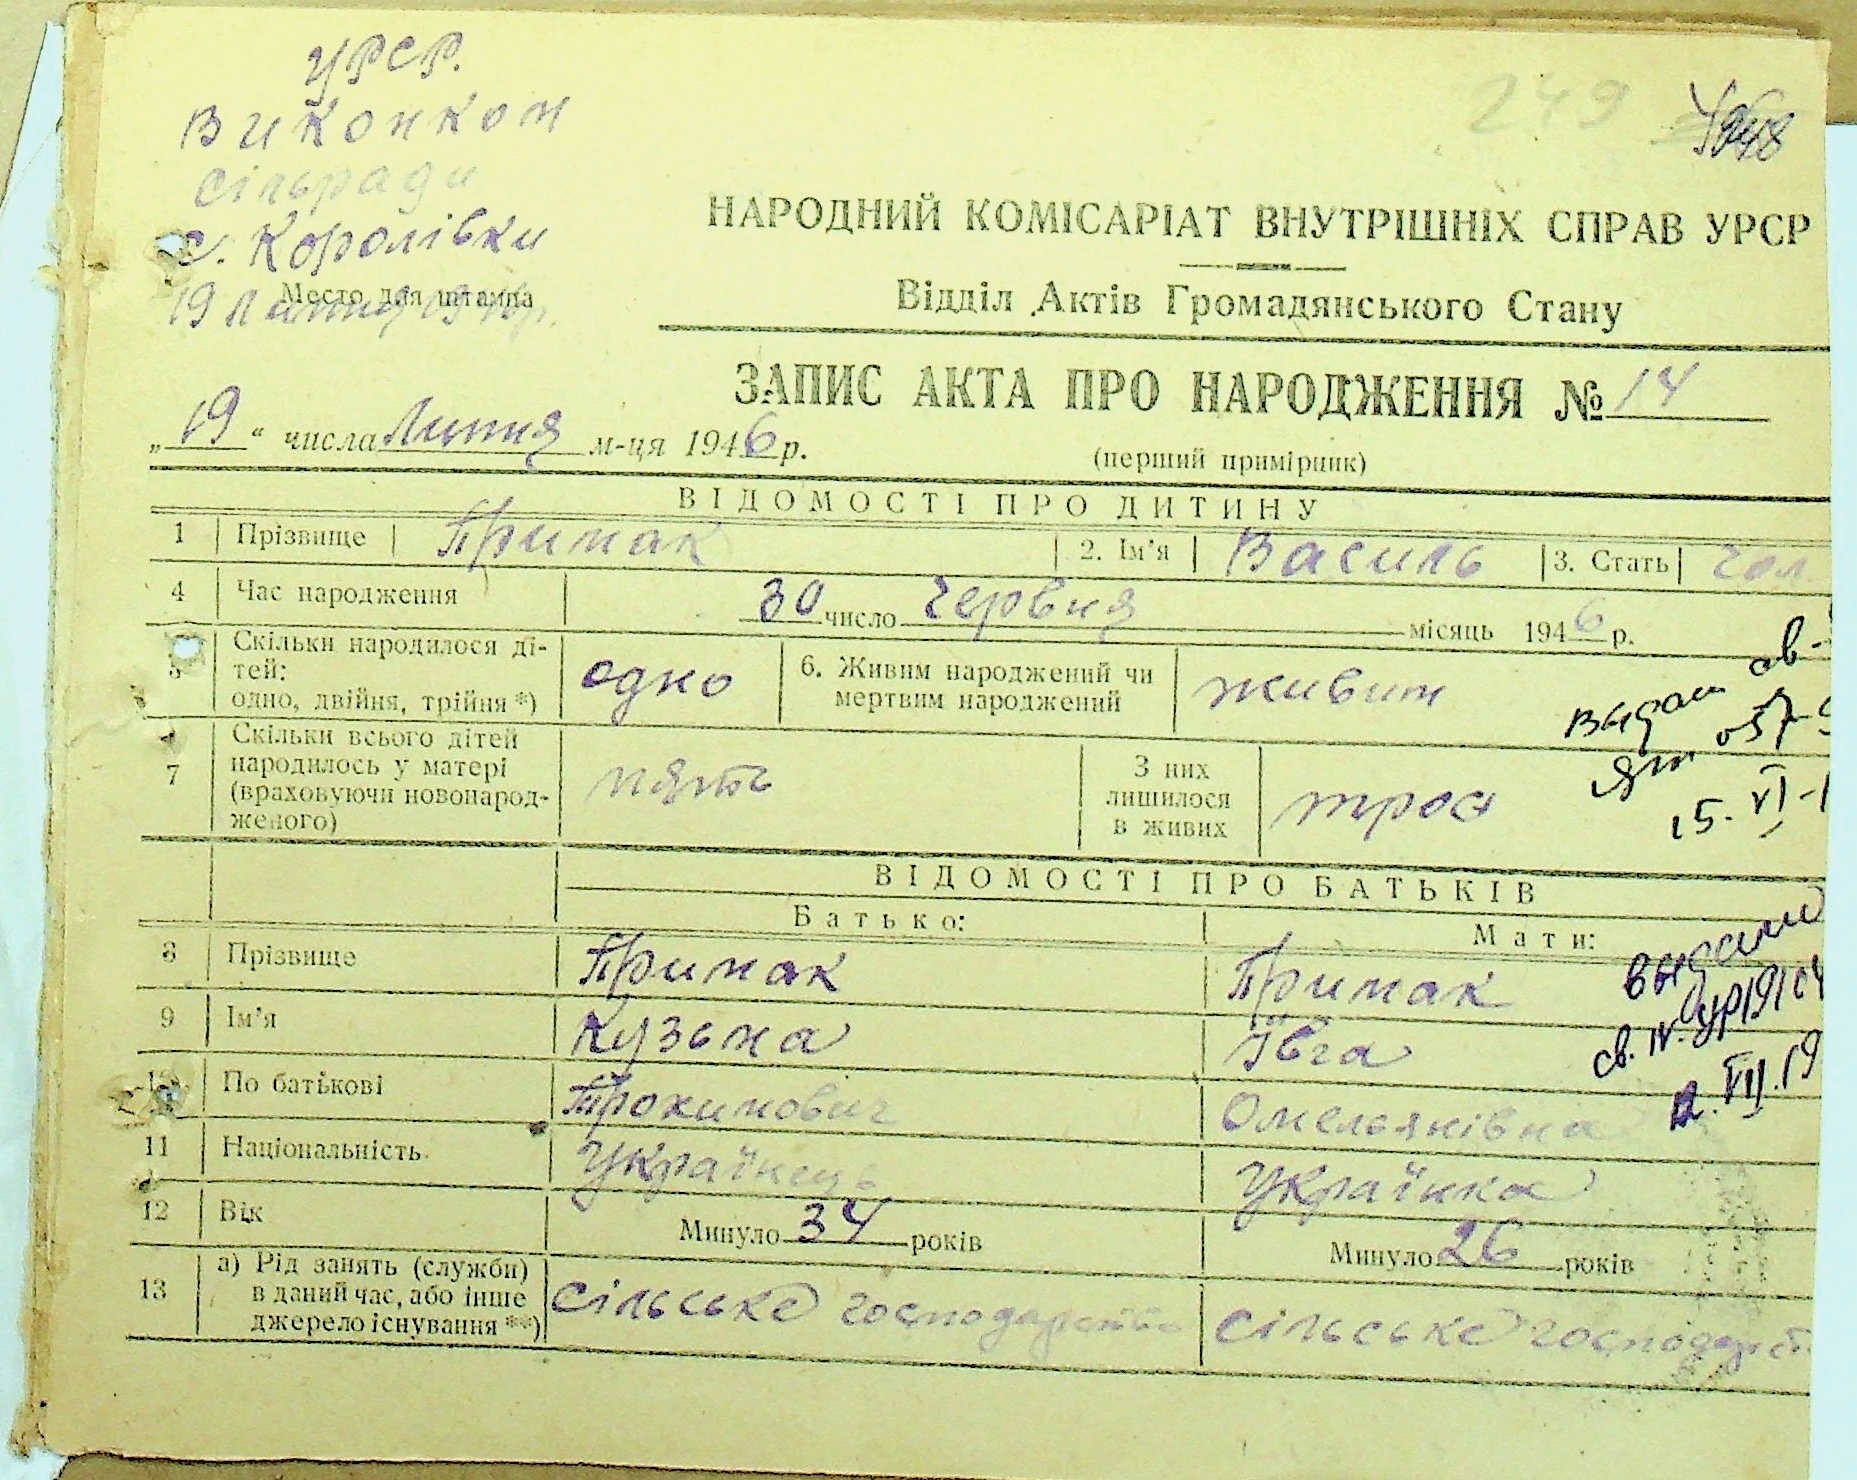 УРСР.
Виконком
сільради
с. Королівки
Место для штампа
19 Липня 1946р.
249
НАРОДНИЙ КОМІСАРІАТ ВНУТРІШНІХ СПРАВ УРСР
Відділ Актів Громадянського Стану
ЗАПИС АКТА ПРО НАРОДЖЕННЯ № 14
„19“ числа Липня м-ця 1946 р.
(перший примірник)
ВІДОМОСТІ ПРО ДИТИНУ
1 Прізвище Примак 2. Ім'я Василь 3. Стать чол
4 Час народження 30 число Червня місяць 1946 р.
5 Скільки народилося ді-
тей:
одно, двійня, трійня *) одно 6. Живим народжений чи
мертвим народжений живим
7 Скільки всього дітей
народилось у матері
(враховуючи новонарод-
женого) пять З них
лишилося
в живих троє
15. VI-1
ВІДОМОСТІ ПРО БАТЬКІВ
Батько: Мати:
8 Прізвище Примак Примак
9 Ім'я Кузьма Ївга
10 По батькові Трохимович Омелянівна
11 Національність Українець Українка
12 Вік Минуло 34 років Минуло 26 років
13 а) Рід занять (служби)
в даний час, або інше
джерело існування **) сільське господарство сільське господарст